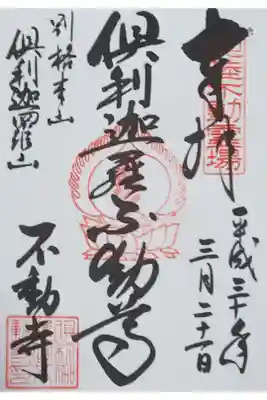 奉拝
平成三十年
三月二十一日
俱利迦羅不動尊
別格本山
俱利迦羅山
不動寺